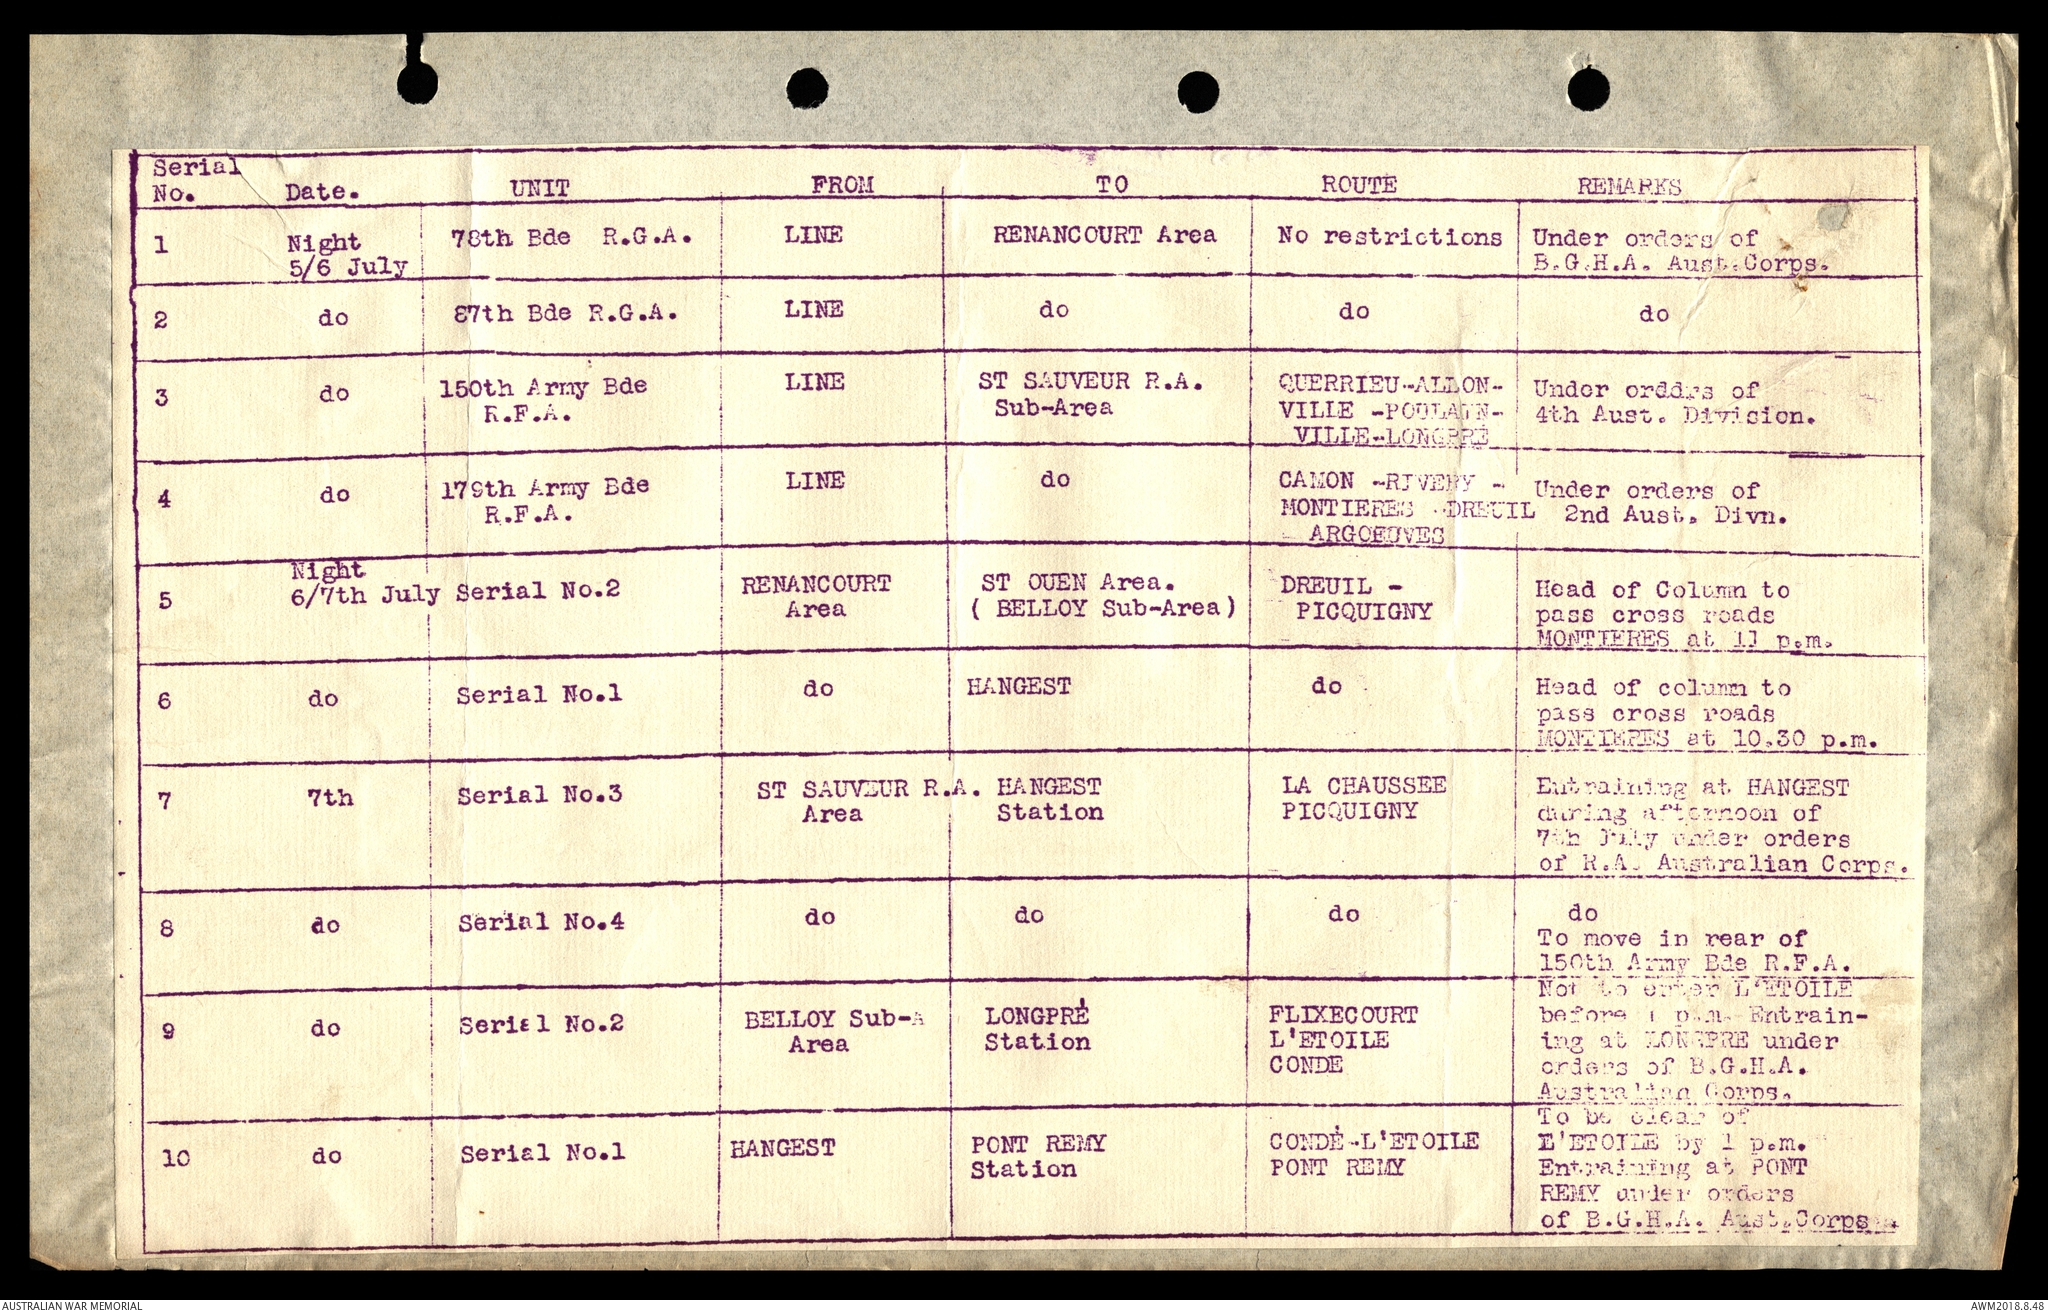 Serial No. Date. UNIT FROM TO ROUTE REMARKS
1 Night 5/6 July 78th Bde R.G.A. LINE RENANCOURT Area No restrictions Under orders of
B.G.H.A. Aust.Corps.
2 do 87th Bde R.G.A. LINE do do do
3 do 150th Army Bde LINE ST SAUVEUR R.A. QUERRIEU-ALLON- Under orddrs of
R.F.A. Sub-Area VILLE -POULAIN- 4th Aust. Division.
VILLE-LONGPRÉ
4 do 179th Army Bde LINE do CAMON -RIVERY - Under orders of
R.F.A. MONTIERES -DREUIL 2nd Aust. Divn.
ARGOEUVES
5 Night 6/7th July Serial No.2 RENANCOURT ST OUEN Area. DREUIL - Head of Column to
Area ( BELLOY Sub-Area) PICQUIGNY pass cross roads
MONTIERES at 11 p.m.
6 do Serial No.1 do HANGEST do Head of column to
pass cross roads
MONTIERES at 10.30 p.m.
7 7th Serial No.3 ST SAUVEUR R.A. HANGEST LA CHAUSSEE Entraining at HANGEST
Area Station PICQUIGNY during afternoon of
7th July under orders
of R.A. Australian Corps.
8 do Serial No.4 do do do do
To move in rear of
150th Army Bde R.F.A.
9 do Serial No.2 BELLOY Sub-A LONGPRÉ FLIXECOURT Not to enter L'ETOILE
Area Station L'ETOILE before 1 p.m. Entrain-
CONDE ing at LONGPRE under
orders of B.G.H.A.
Australian Corps.
10 do Serial No.1 HANGEST PONT REMY CONDÉ-L'ETOILE To be clear of
Station PONT REMY L'ETOILE by 1 p.m.
Entraining at PONT
REMY under orders
of B.G.H.A. Aust.Corps
AUSTRALIAN WAR MEMORIAL AWM2018.8.48